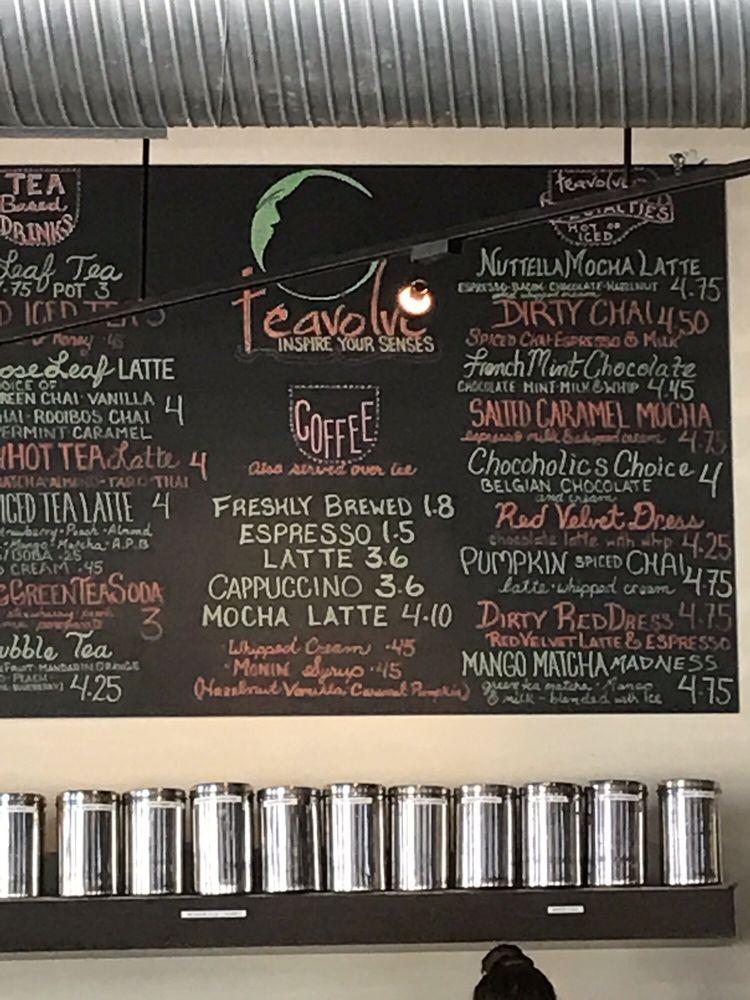 TEA
Based
DRINKS
Leaf Tea
.75 POT 3
D ICED TEA
Honey .45
ose Leaf LATTE
OICE OF
REEN CHAI · VANILLA
HAI · ROOIBOS CHAI 4
ERMINT CARAMEL
HOT TEA Latte 4
ATCHA · ALMOND · TARO · THAI
ICED TEA LATTE 4
trawberry · Peach · Almond
Mango · Matcha · A.P.B
/BOBA .25
CREAM .45
GREEN TEA SODA
3
ubble Tea
FRUIT · MANDARIN ORANGE
PEACH
4.25
teavolve
INSPIRE YOUR SENSES
COFFEE
Also served over ice
FRESHLY BREWED 1.8
ESPRESSO 1.5
LATTE 3.6
CAPPUCCINO 3.6
MOCHA LATTE 4.10
· Whipped Cream .45
· MONIN Syrup .45
(Hazelnut Vanilla Caramel Pumpkin)
teavolve
SPECIALTIES
HOT OR
ICED
NUTTELLA MOCHA LATTE
ESPRESSO · CHOCOLATE · HAZELNUT 4.75
and whipped cream
DIRTY CHAI 4.50
SPICED CHAI · ESPRESSO & MILK
French Mint Chocolate
CHOCOLATE · MINT · MILK & WHIP 4.45
SALTED CARAMEL MOCHA
espresso milk & whipped cream 4.75
Chocoholics Choice 4
BELGIAN CHOCOLATE
and cream
Red Velvet Dress
chocolate latte with whip 4.25
PUMPKIN SPICED CHAI
latte · whipped cream 4.75
DIRTY RED DRESS 4.75
RED VELVET LATTE & ESPRESSO
MANGO MATCHA MADNESS
green tea matcha · Mango
& milk - blended with ice 4.75